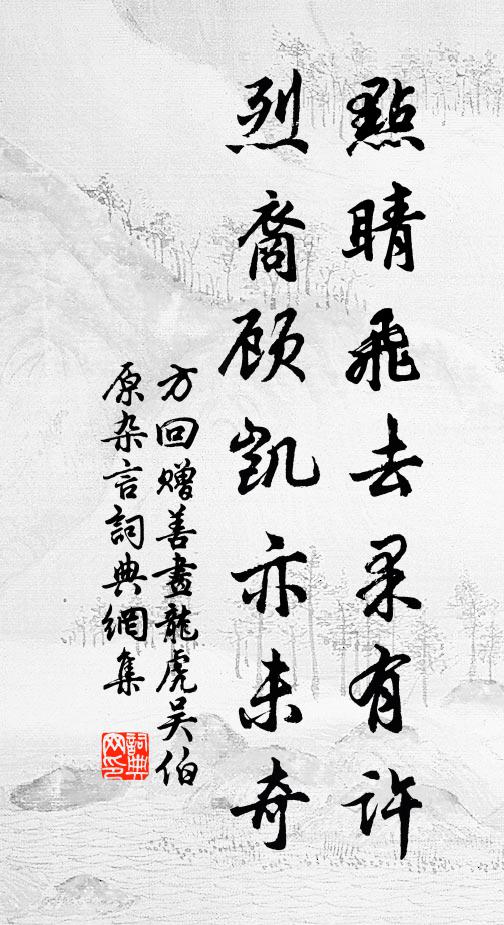 點睛飛去果有許
烈裔顾凱亦未奇
方回贈善畫龍虎吴伯
原杂言詞典網集
詞典
网印